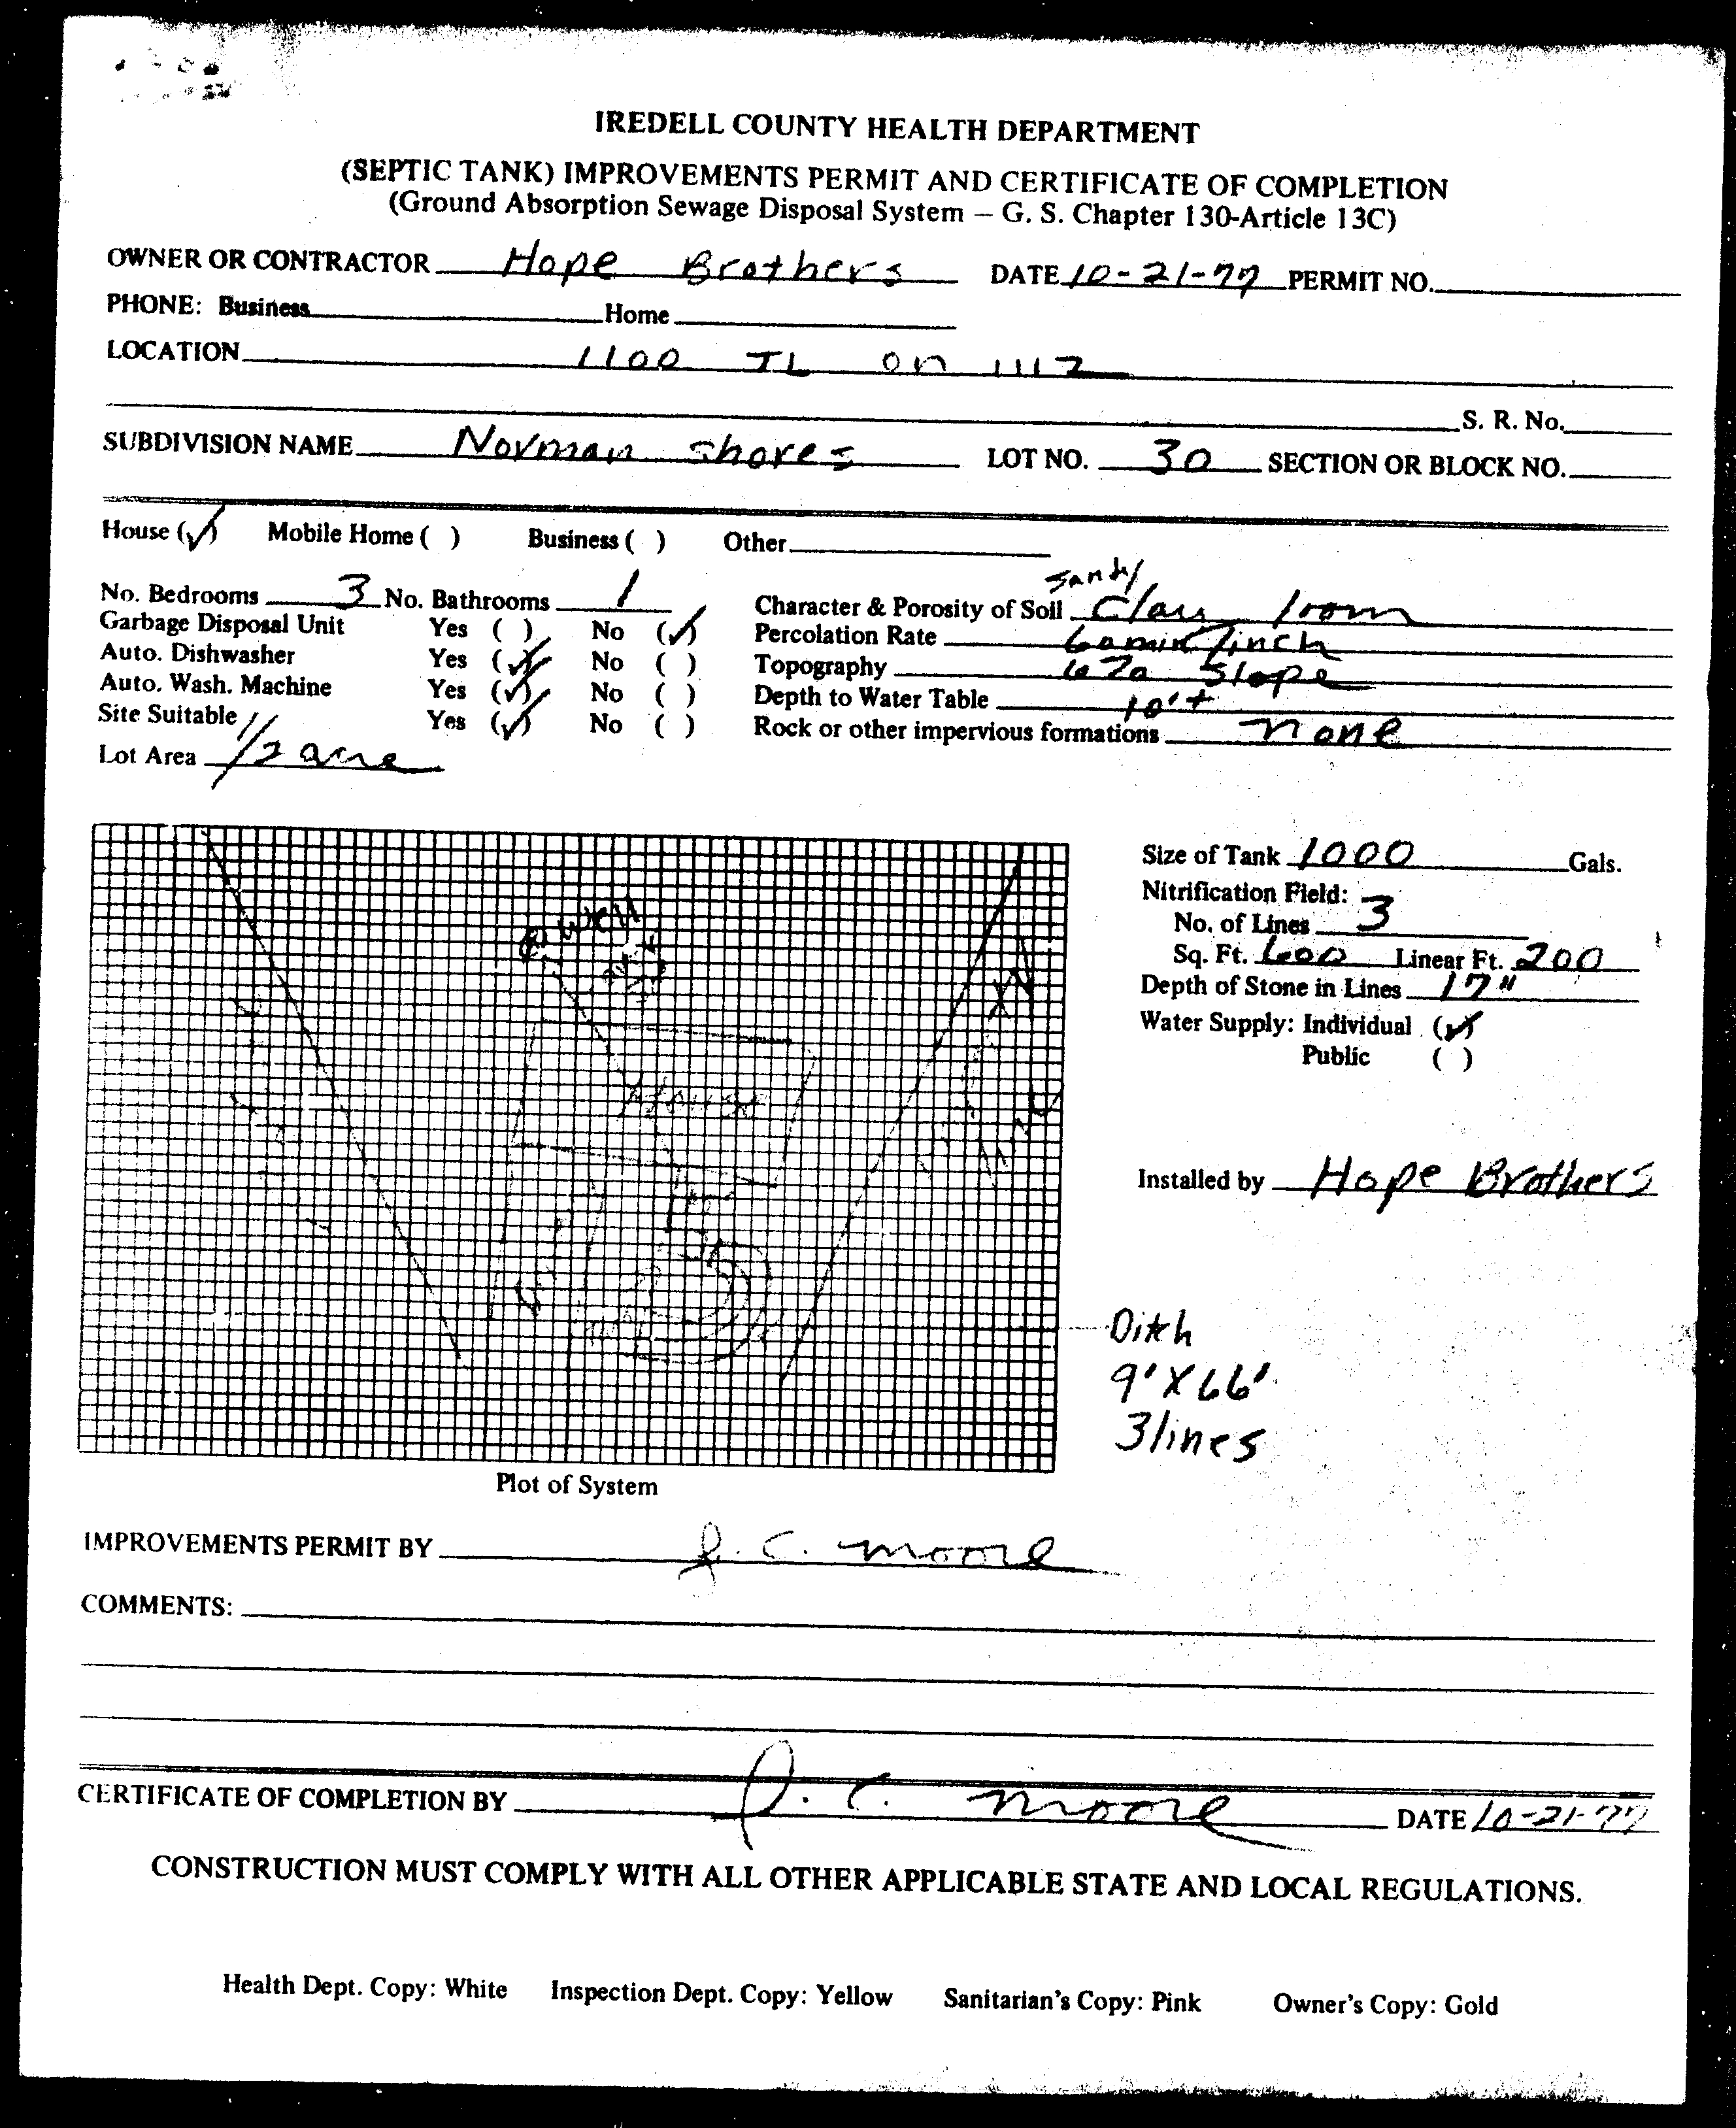 IREDELL COUNTY HEALTH DEPARTMENT
(SEPTIC TANK) IMPROVEMENTS PERMIT AND CERTIFICATE OF COMPLETION
(Ground Absorption Sewage Disposal System – G. S. Chapter 130-Article 13C)
OWNER OR CONTRACTOR Hope Brothers DATE 10-21-77 PERMIT NO.
PHONE: Business Home
LOCATION 1100 TL on 1112
S. R. No.
SUBDIVISION NAME Norman shores LOT NO. 30 SECTION OR BLOCK NO.
House (✓) Mobile Home ( ) Business ( ) Other
Sandy
No. Bedrooms 3 No. Bathrooms 1 Character & Porosity of Soil Clay loom
Garbage Disposal Unit Yes ( ) No (✓) Percolation Rate 60 min/inch
Auto. Dishwasher Yes (✓) No ( ) Topography 6% Slope
Auto. Wash. Machine Yes (✓) No ( ) Depth to Water Table 10'+
Site Suitable Yes (✓) No ( ) Rock or other impervious formations none
Lot Area 1/2 acre
Size of Tank 1000 Gals.
Nitrification Field:
No. of Lines 3
Sq. Ft. 600 Linear Ft. 200
Depth of Stone in Lines 17"
Water Supply: Individual (✓)
Public ( )
Well
House
Installed by Hope Brothers
Ditch
9' X 66'
3 lines
Plot of System
IMPROVEMENTS PERMIT BY J. C. Moore
COMMENTS:
CERTIFICATE OF COMPLETION BY J. C. Moore DATE 10-21-77
CONSTRUCTION MUST COMPLY WITH ALL OTHER APPLICABLE STATE AND LOCAL REGULATIONS.
Health Dept. Copy: White Inspection Dept. Copy: Yellow Sanitarian's Copy: Pink Owner's Copy: Gold